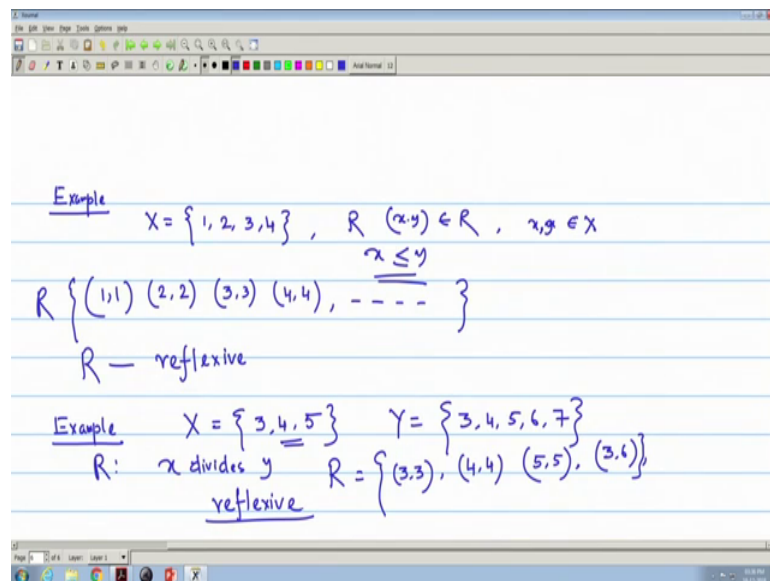 Journal
File Edit View Page Tools Options Help
Arial Normal 12
Example
X = { 1, 2, 3, 4 } , R (x,y) ∈ R , x,y ∈ X
x ≤ y
R { (1,1) (2,2) (3,3) (4,4), - - - - }
R — reflexive
Example X = { 3, 4, 5 } Y = { 3, 4, 5, 6, 7 }
R: x divides y R = { (3,3), (4,4) (5,5), (3,6) },
reflexive
Page 6 of 6 Layer: Layer 1